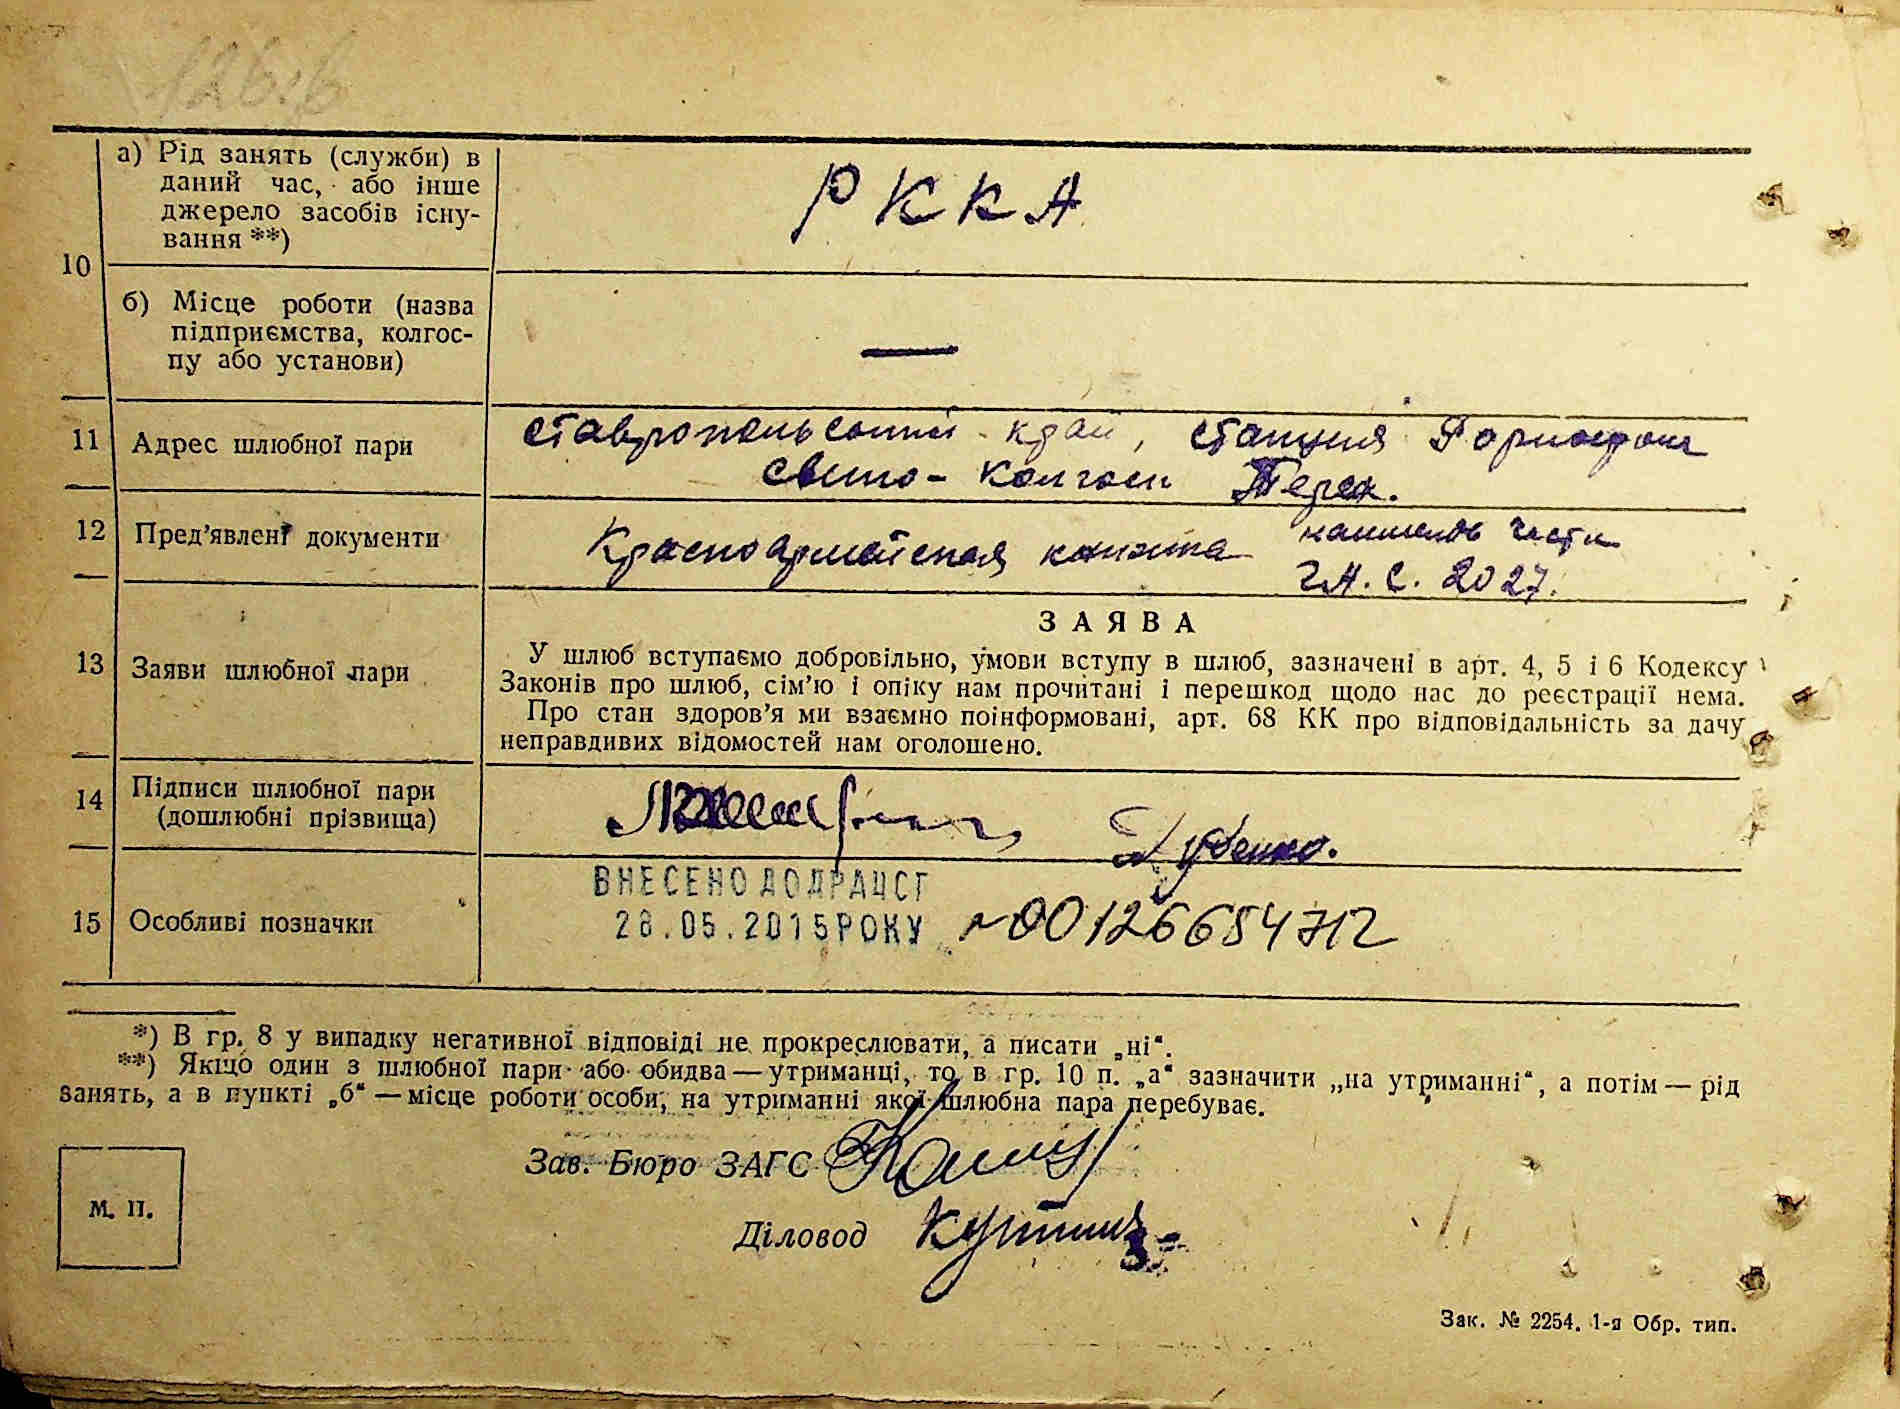 126.б
а) Рід занять (служби) в
даний час, або інше
джерело засобів існу-
вання **)
РККА
10
б) Місце роботи (назва
підприємства, колгос-
пу або установи)
—
11
Адрес шлюбної пари
Ставропольский край, станция
Свино- Колгосп Терек.
12
Пред'явлені документи
Красноармейская книжка части
2027.
13
Заяви шлюбної пари
ЗАЯВА
У шлюб вступаємо добровільно, умови вступу в шлюб, зазначені в арт. 4, 5 і 6 Кодексу
Законів про шлюб, сім'ю і опіку нам прочитані і перешкод щодо нас до реєстрації нема.
Про стан здоров'я ми взаємно поінформовані, арт. 68 КК про відповідальність за дачу
неправдивих відомостей нам оголошено.
14
Підписи шлюбної пари
(дошлюбні прізвища)
Дубенко.
15
Особливі позначки
ВНЕСЕНО ДО ДРАЦСГ
28.05.2015 РОКУ №00126684712
*) В гр. 8 у випадку негативної відповіді не прокреслювати, а писати „ні“.
**) Якщо один з шлюбної пари або обидва — утриманці, то в гр. 10 п. „а“ зазначити „на утриманні“, а потім — рід
занять, а в пункті „б“ — місце роботи особи, на утриманні якої шлюбна пара перебуває.
Зав. Бюро ЗАГС
М. П.
Діловод
Зак. № 2254. 1-я Обр. тип.